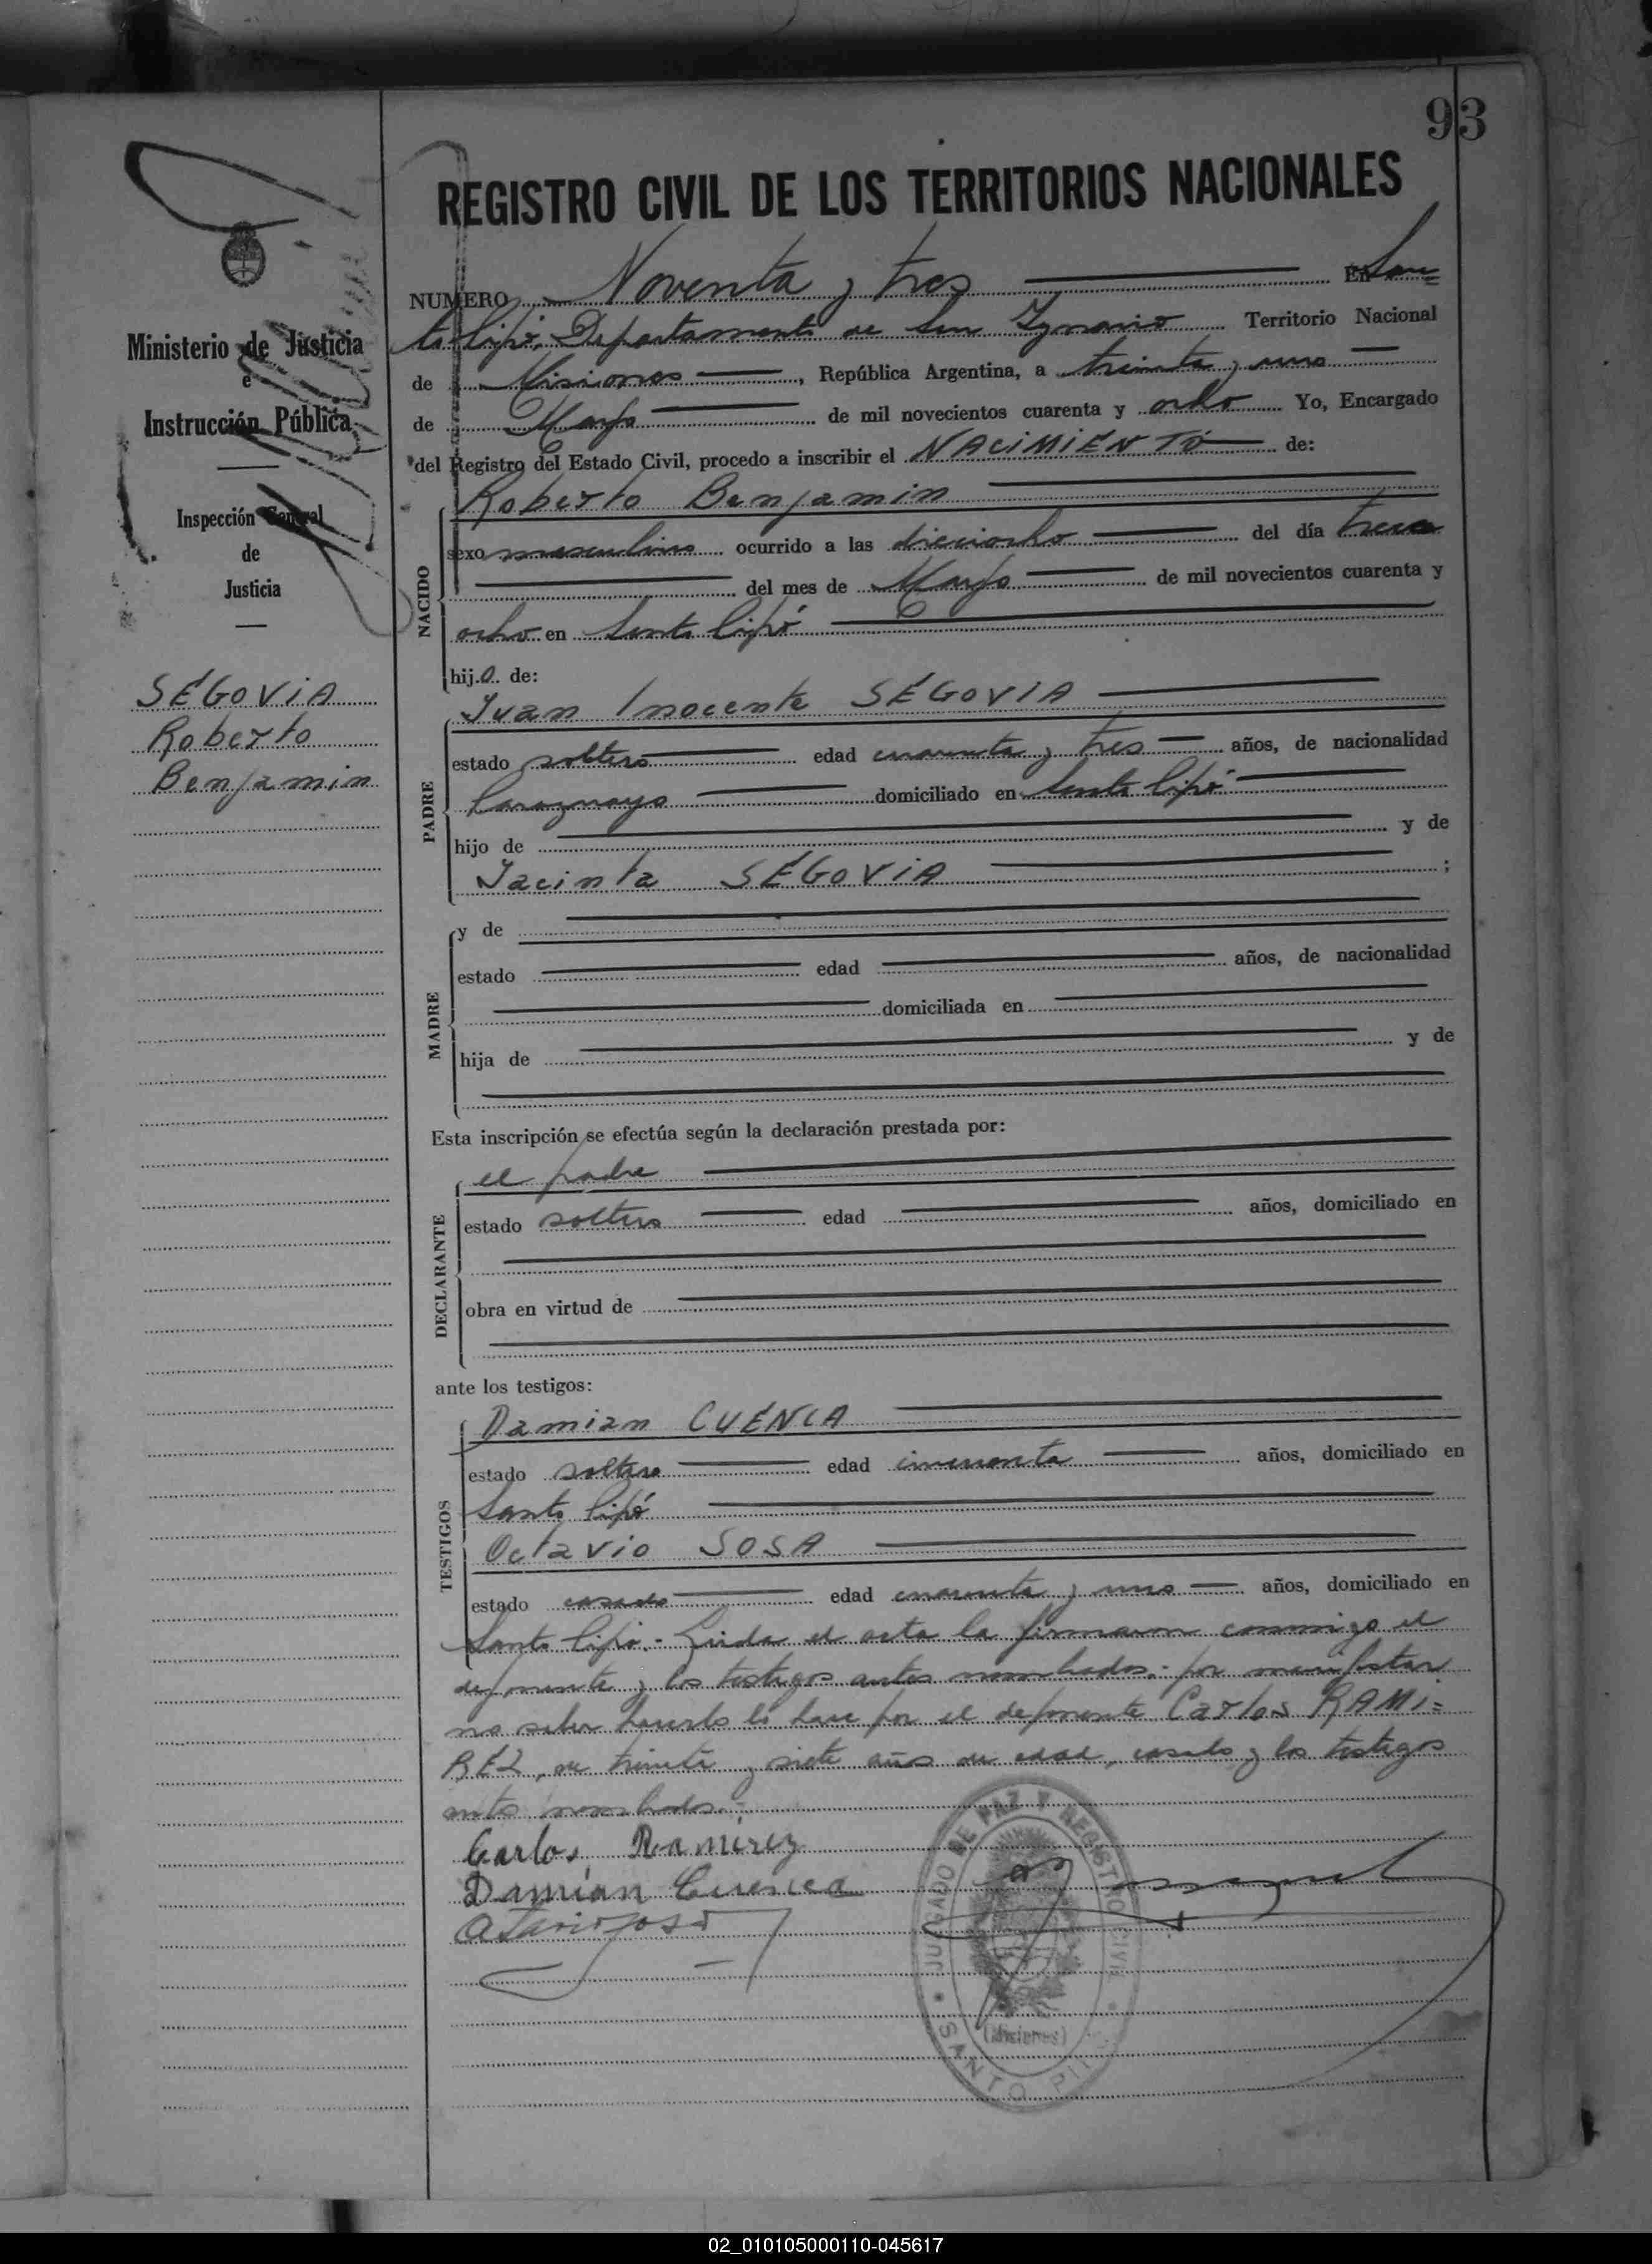 93
REGISTRO CIVIL DE LOS TERRITORIOS NACIONALES
NUMERO Noventa y tres En San=
to Pipó, Departamento de San Ygnacio Territorio Nacional
de Misiones, República Argentina, a treinta y uno
de Marzo de mil novecientos cuarenta y ocho Yo, Encargado
del Registro del Estado Civil, procedo a inscribir el NACIMIENTO de:
Roberto Benjamin
sexo masculino ocurrido a las dieciocho del día trece
del mes de Marzo de mil novecientos cuarenta y
ocho en Santo Pipó
hijo de:
Juan Inocente SEGOVIA
estado soltero edad cuarenta y tres años, de nacionalidad
Paraguayo domiciliado en Santo Pipó
hijo de y de
Jacinta SEGOVIA ;
y de
estado edad años, de nacionalidad
domiciliada en
hija de y de
Esta inscripción se efectúa según la declaración prestada por:
el padre
estado soltero edad años, domiciliado en
obra en virtud de
ante los testigos:
Damian CUENCA
estado soltero edad cincuenta años, domiciliado en
Santo Pipó
Octavio SOSA
estado casado edad cuarenta y uno años, domiciliado en
Santo Pipó.- Leida el acta la firmaron conmigo el
deponente y los testigos antes nombrados.- por manifestar
no saber hacerlo lo hace por el deponente Carlos RAMI=
REZ, de treinta y siete años de edad, casado y los testigos
antes nombrados.-
Carlos Ramirez
Damian Cuenca
NACIDO
PADRE
MADRE
DECLARANTE
TESTIGOS
Ministerio de Justicia
e
Instrucción Pública
Inspección General
de
Justicia
SEGOVIA
Roberto
Benjamin
JUZGADO DE PAZ Y REGISTRO CIVIL
(Misiones)
SANTO PIPO
02_010105000110-045617